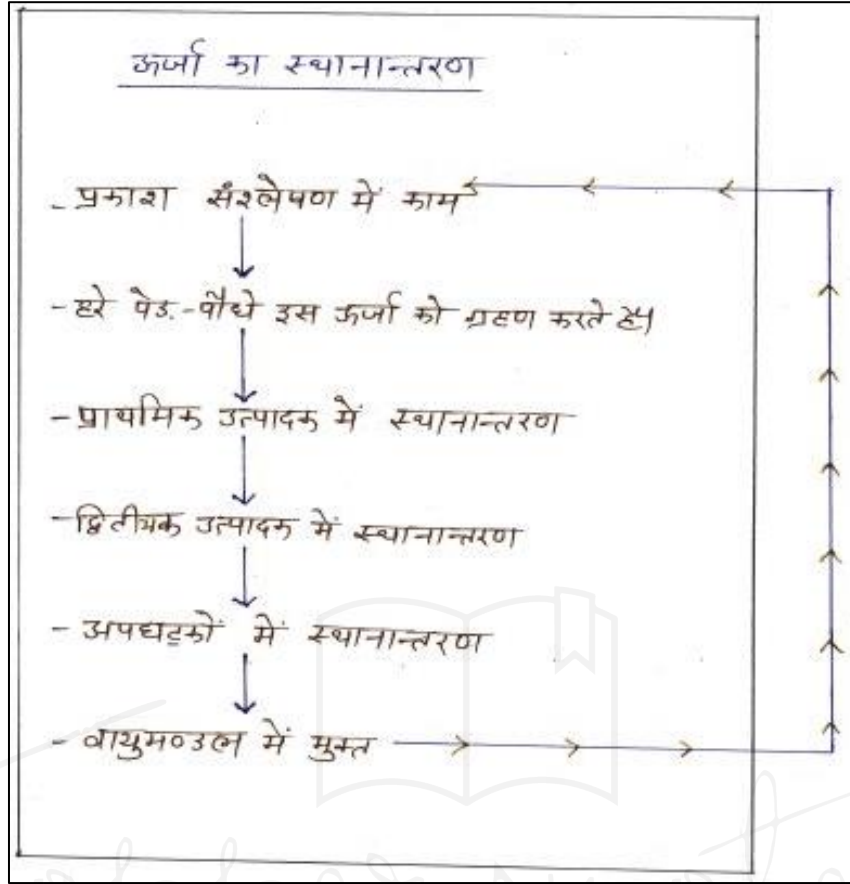 ऊर्जा का स्थानान्तरण
- प्रकाश संश्लेषण में काम
- हरे पेड़-पौधे इस ऊर्जा को ग्रहण करते है।
- प्राथमिक उत्पादक में स्थानान्तरण
- द्वितीयक उत्पादक में स्थानान्तरण
- अपघटकों में स्थानान्तरण
- वायुमण्डल में मुक्त